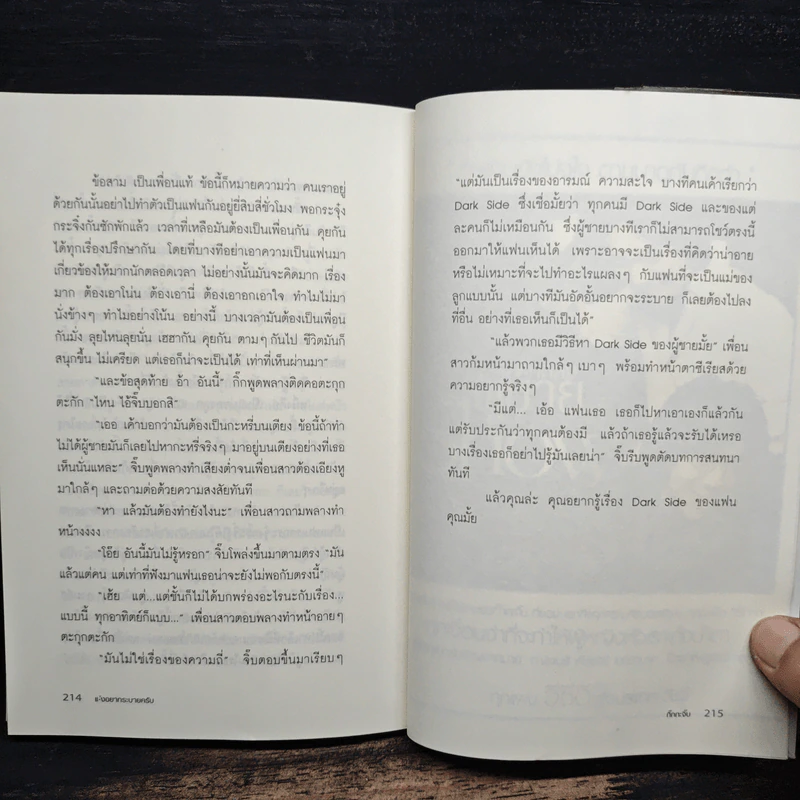 ข้อสาม เป็นเพื่อนแท้ ข้อนี้ก็หมายความว่า คนเราอยู่
ด้วยกันนั้นอย่าไปทำตัวเป็นแฟนกันอยู่ยี่สิบสี่ชั่วโมง พอกระจุ๋ง
กระจิ๋งกันซักพักแล้ว เวลาที่เหลือมันต้องเป็นเพื่อนกัน คุยกัน
ได้ทุกเรื่องปรึกษากัน โดยที่บางทีอย่าเอาความเป็นแฟนมา
เกี่ยวข้องให้มากนักตลอดเวลา ไม่อย่างนั้นมันจะคิดมาก เรื่อง
มาก ต้องเอาโน่น ต้องเอานี่ ต้องเอาอกเอาใจ ทำไมไม่มา
นั่งข้างๆ ทำไมอย่างโน้น อย่างนี้ บางเวลามันต้องเป็นเพื่อน
กันมั่ง ลุยไหนลุยนั่น เฮฮากัน คุยกัน ตามๆ กันไป ชีวิตมันก็
สนุกขึ้น ไม่เครียด แต่เธอก็น่าจะเป็นได้ เท่าที่เห็นผ่านมา"
"และข้อสุดท้าย อ้า อันนี้" กิ๊กพูดพลางติดคอตะกุก
ตะกัก "ไหน ไอ้จิ๊บบอกสิ"
"เออ เค้าบอกว่ามันต้องเป็นกะหรี่บนเตียง ข้อนี้ถ้าทำ
ไม่ได้ผู้ชายมันก็เลยไปหากะหรี่จริงๆ มาอยู่บนเตียงอย่างที่เธอ
เห็นนั่นแหละ" จิ๊บพูดพลางทำเสียงต่ำจนเพื่อนสาวต้องเอียงหู
มาใกล้ๆ และถามต่อด้วยความสงสัยทันที
"หา แล้วมันต้องทำยังไงนะ" เพื่อนสาวถามพลางทำ
หน้างงงง
"โอ๊ย อันนี้มันไม่รู้หรอก" จิ๊บโพล่งขึ้นมาตามตรง "มัน
แล้วแต่คน แต่เท่าที่ฟังมาแฟนเธอน่าจะยังไม่พอกับตรงนี้"
"เฮ้ย แต่...แต่ชั้นก็ไม่ได้บกพร่องอะไรนะกับเรื่อง...
แบบนี้ ทุกอาทิตย์ก็แบบ..." เพื่อนสาวตอบพลางทำหน้าอายๆ
ตะกุกตะกัก
"มันไม่ใช่เรื่องของความถี่" จิ๊บตอบขึ้นมาเรียบๆ
214 แค่อยากระบายครับ
"แต่มันเป็นเรื่องของอารมณ์ ความสะใจ บางทีคนเค้าเรียกว่า
Dark Side ซึ่งเชื่อมั้ยว่า ทุกคนมี Dark Side และของแต่
ละคนก็ไม่เหมือนกัน ซึ่งผู้ชายบางทีเราก็ไม่สามารถโชว์ตรงนี้
ออกมาให้แฟนเห็นได้ เพราะอาจจะเป็นเรื่องที่คิดว่าน่าอาย
หรือไม่เหมาะที่จะไปทำอะไรแผลงๆ กับแฟนที่จะเป็นแม่ของ
ลูกแบบนั้น แต่บางทีมันอัดอั้นอยากจะระบาย ก็เลยต้องไปลง
ที่อื่น อย่างที่เธอเห็นก็เป็นได้"
"แล้วพวกเธอมีวิธีหา Dark Side ของผู้ชายมั้ย" เพื่อน
สาวก้มหน้ามาถามใกล้ๆ เบาๆ พร้อมทำหน้าตาซีเรียสด้วย
ความอยากรู้จริงๆ
"มีแต่... เอ้อ แฟนเธอ เธอก็ไปหาเอาเองก็แล้วกัน
แต่รับประกันว่าทุกคนต้องมี แล้วถ้าเธอรู้แล้วจะรับได้เหรอ
บางเรื่องเธอก็อย่าไปรู้มันเลยน่า" จิ๊บรีบพูดตัดบทการสนทนา
ทันที
แล้วคุณล่ะ คุณอยากรู้เรื่อง Dark Side ของแฟน
คุณมั้ย
กิ๊กกะจิ๊บ 215